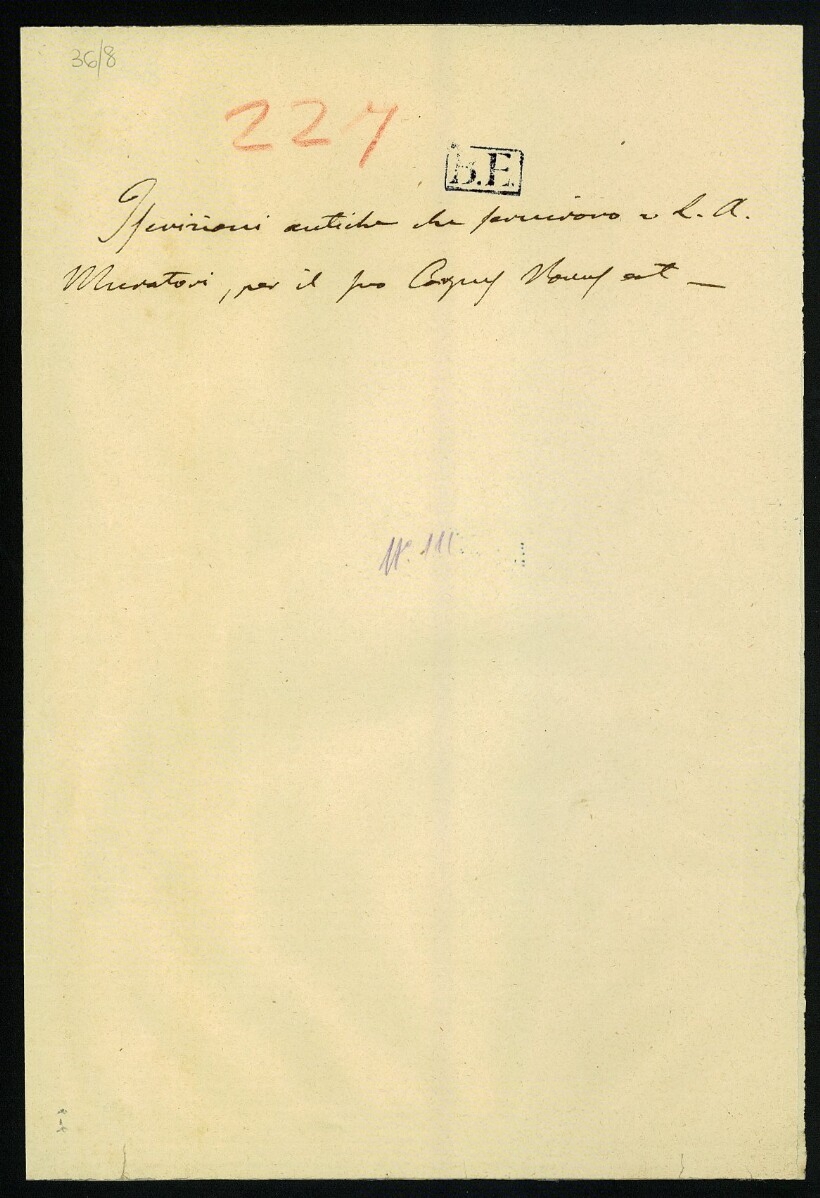 36/8
227
B.E.
Iscrizioni antiche che servirono a L. A.
Muratori, per il suo Corpus
N. III.